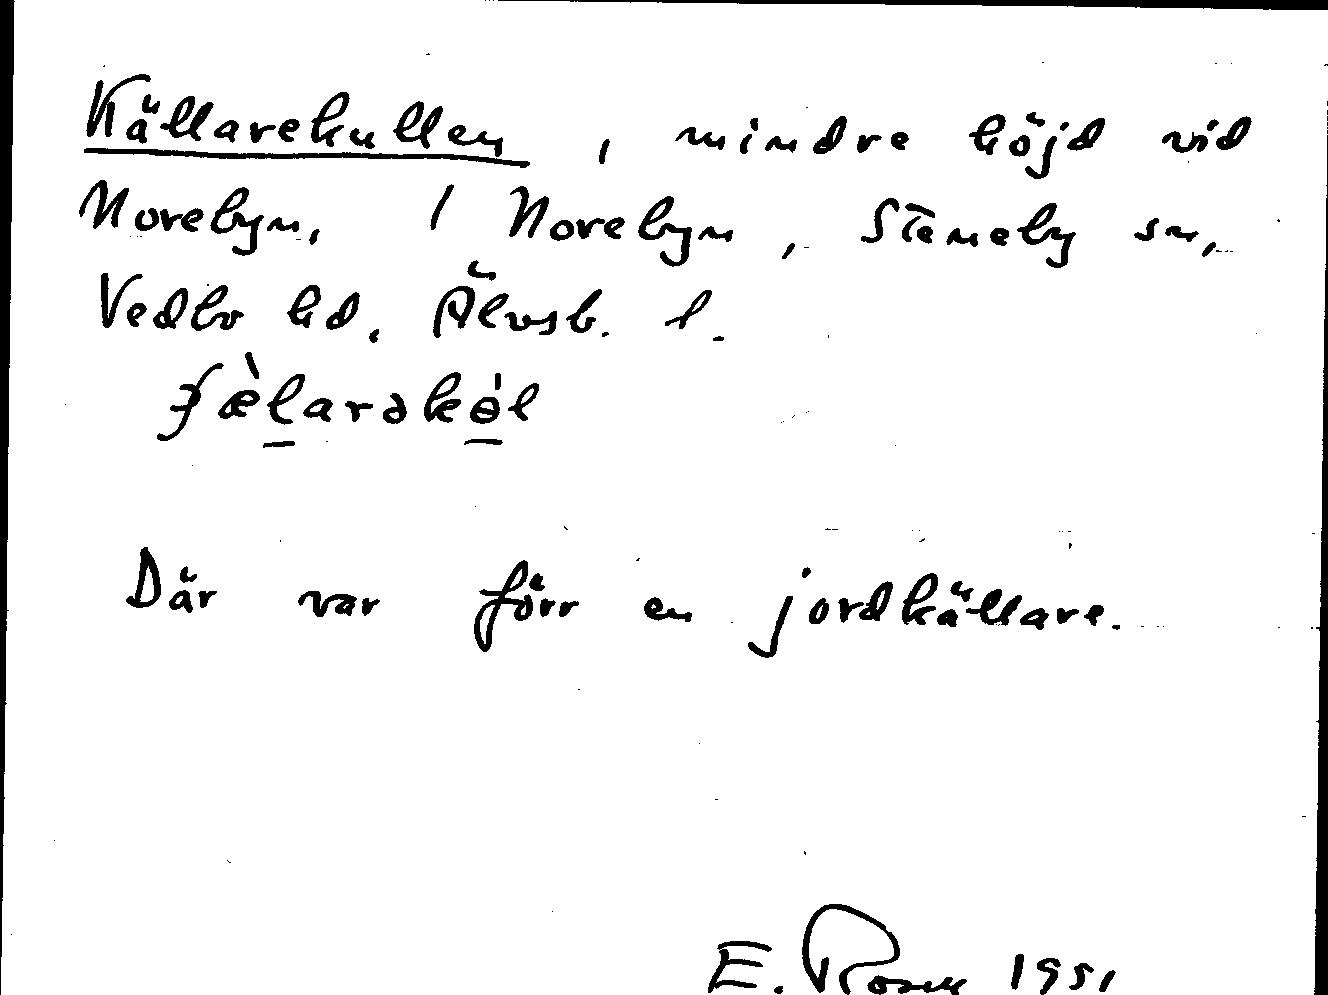 Källarekullen, mindre höjd vid
Norebyn, / Norebyn, Steneby sn,
Vedbo hd. Älvsb. l.
Där var förr en jordkällare.
E. Rosell 1951